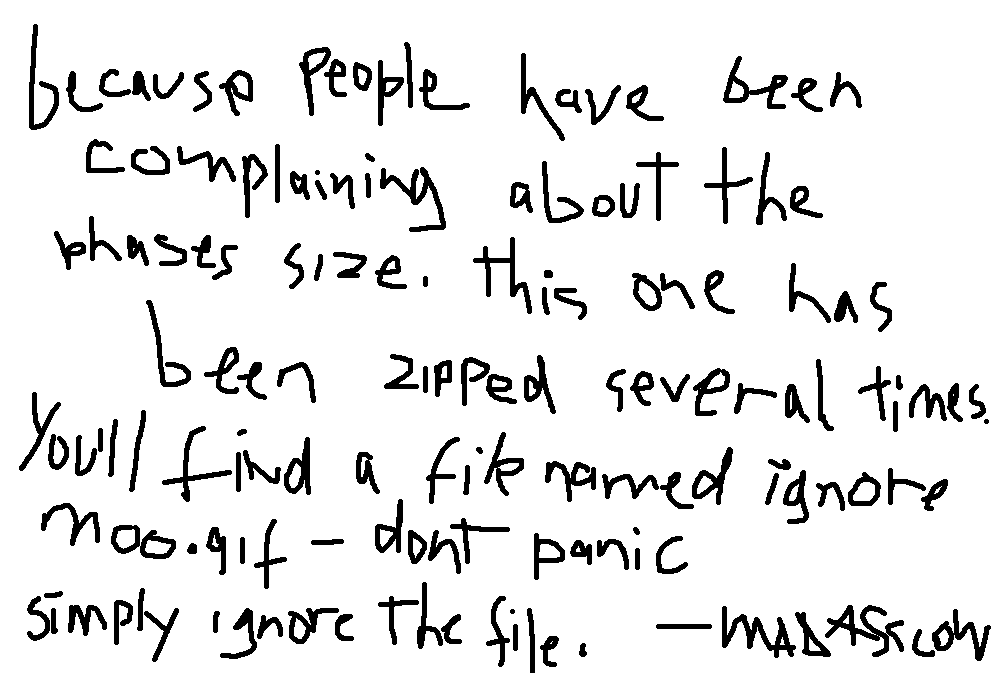 because people have been
complaining about the
phases size. this one has
been zipped several times.
You'll find a file named ignore
moo.gif - dont panic
simply ignore the file. - MADASSCOW